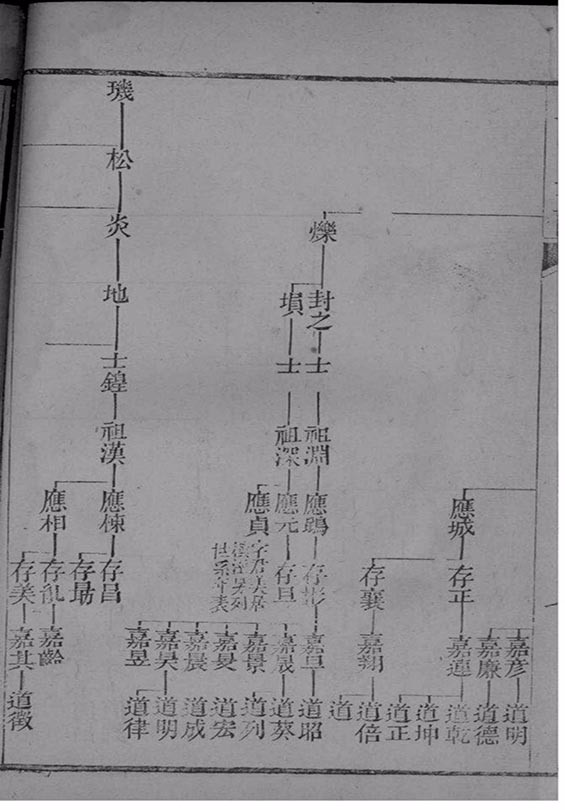 嘉彥 道明
嘉廉 道德
應城 存正 嘉運 道乾
道坤
道正
存襄 嘉翔 道倍
道
爍 封之 士 祖淵 存彬 嘉旦 道昭
塤 士 祖深 應元 存旦 嘉晟 道葵
應貞 嘉景 道列
字君美居
另列
世系年表
嘉旻 道宏
嘉晨 道成
嘉昊 道明
嘉昱 道律
璣 松 炎 地 士鍠 祖漢 應棟 存昌
存勗
應相 嘉齡
存美 嘉其 道徵